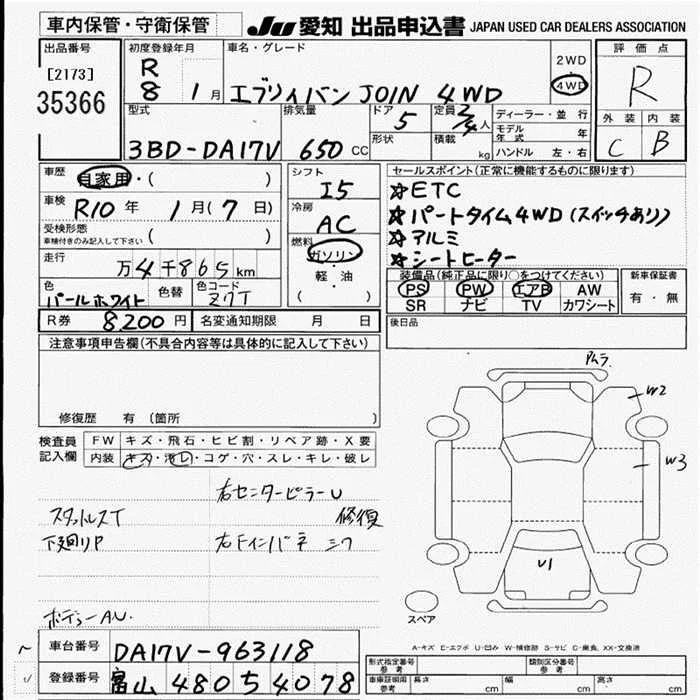 車内保管・守衛保管
JU 愛知 出品申込書 JAPAN USED CAR DEALERS ASSOCIATION
出品番号
[2173]
35366
初度登録年月
R
8 1月
車名・グレード
エブリィバン JOIN 4WD
2WD
4WD
評価点
R
外装 内装
C B
型式
3BD-DA17V
排気量
650 CC
ドア
5
形状
定員
2/4人
積載
kg
ディーラー・並行
モデル年式 年
ハンドル 左・右
車歴
自家用・( )
車検
R10年 1月(7日)
受検形態
車検付きのみ記入して下さい ( )
走行
万4千865km
色
パールホワイト
色替
色コード
Z7T
シフト
I5
冷房
AC
燃料
ガソリン
・
軽・油
( )
セールスポイント(正常に機能するものに限ります)
☆ETC
☆パートタイム4WD(スイッチあり)
☆アルミ
☆シートヒーター
装備品(純正品に限り○をつけてください)
PS PW エアB AW
SR ナビ TV カワシート
新車保証書
有・無
R券 8,200円 名変通知期限 月 日
後日品
注意事項申告欄(不具合内容等は具体的に記入して下さい)
修復歴 有 (箇所 )
検査員
記入欄
FW キズ・飛石・ヒビ割・リペア跡・X要
内装 キズ・汚レ・コゲ・穴・スレ・キレ・破レ
右センターピラーU
スタットレスT 修復
下廻りP 右Fインパネ シワ
ボデーAU.
W2
W3
U1
スペア
A-キズ E-エクボ U-凹み W-補修跡 S-サビ C-腐食、XX-交換済
車台番号 DA17V-963118
登録番号 富山 480 う 4078
形式指定番号
参考
類別区分番号
参考
車庫証明用
参考
長さ cm 幅 cm 高さ cm